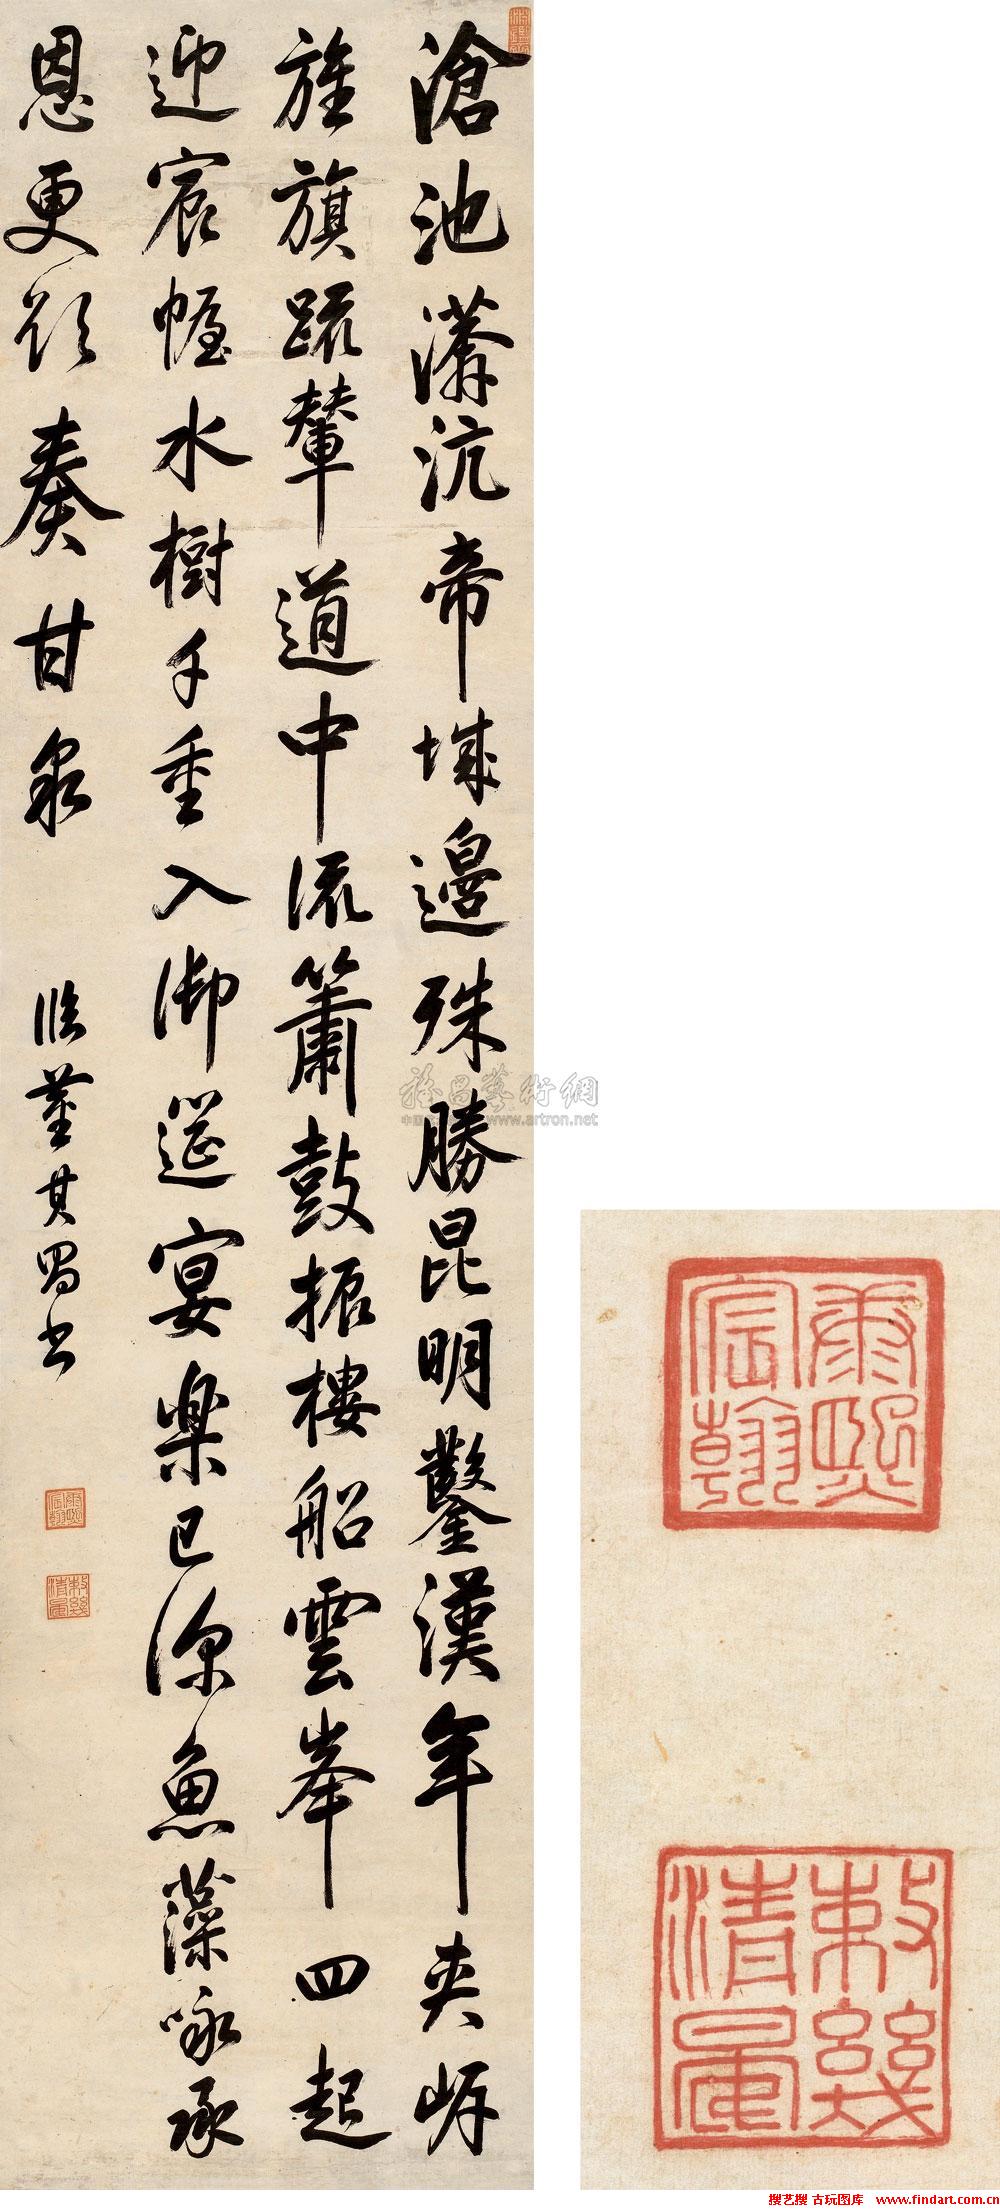 滄池漭沆帝城邊殊勝昆明鑿漢年夾岸
旌旗疏輦道中流簫鼓振樓船雲峯四起
迎宸幄水樹千重入御筵宴樂已深魚藻咏承
恩更欲奏甘泉
臨董其昌書
康熙宸翰
敕幾清晏
雅昌藝術網
www.artron.net
康熙
宸翰
敕幾
清晏
搜艺搜 古玩图库 www.findart.com.cn